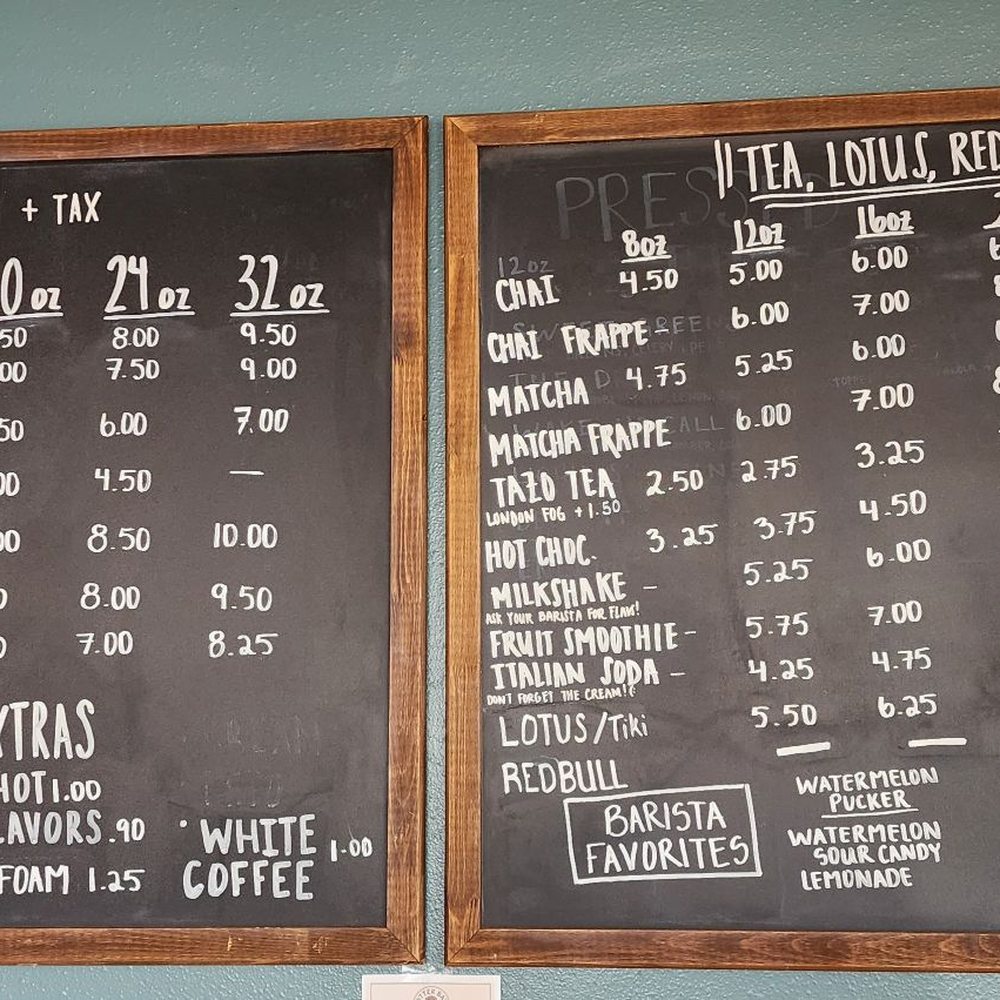 + TAX
0 oz 24 oz 32 oz
50 8.00 9.50
00 7.50 9.00
50 6.00 7.00
00 4.50 —
00 8.50 10.00
0 8.00 9.50
0 7.00 8.25
XTRAS
HOT 1.00
LAVORS .90
FOAM 1.25
· WHITE COFFEE 1.00
TEA, LOTUS, RED
8oz 12oz 16oz
12oz
CHAI 4.50 5.00 6.00
CHAI FRAPPE - 6.00 7.00
MATCHA 4.75 5.25 6.00
MATCHA FRAPPE 6.00 7.00
TAZO TEA 2.50 2.75 3.25
LONDON FOG + 1.50
HOT CHOC. 3.25 3.75 4.50
MILKSHAKE - 5.25 6.00
ASK YOUR BARISTA FOR FLAV!
FRUIT SMOOTHIE - 5.75 7.00
ITALIAN SODA - 4.25 4.75
DON'T FORGET THE CREAM!
LOTUS/Tiki 5.50 6.25
REDBULL — —
BARISTA
FAVORITES
WATERMELON
PUCKER
WATERMELON
SOUR CANDY
LEMONADE